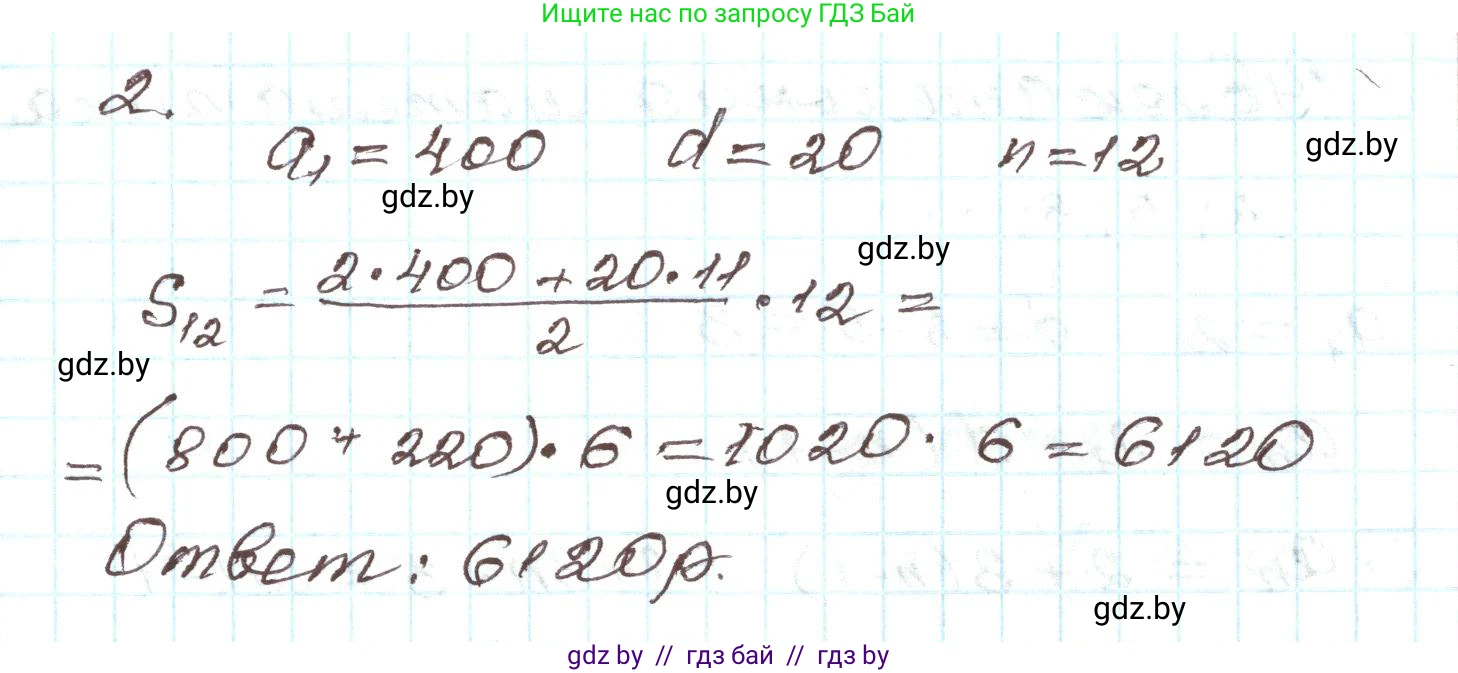 Ищите нас по запросу ГДЗ Бай
2.
a₁ = 400 d = 20 n = 12
gdz.by
gdz.by
gdz.by
S₁₂ = (2·400 + 20·11)/2 · 12 =
gdz.by
= (800 + 220)·6 = 1020·6 = 6120
gdz.by
Ответ: 6120р.
gdz.by
gdz by // гдз бай // гдз by